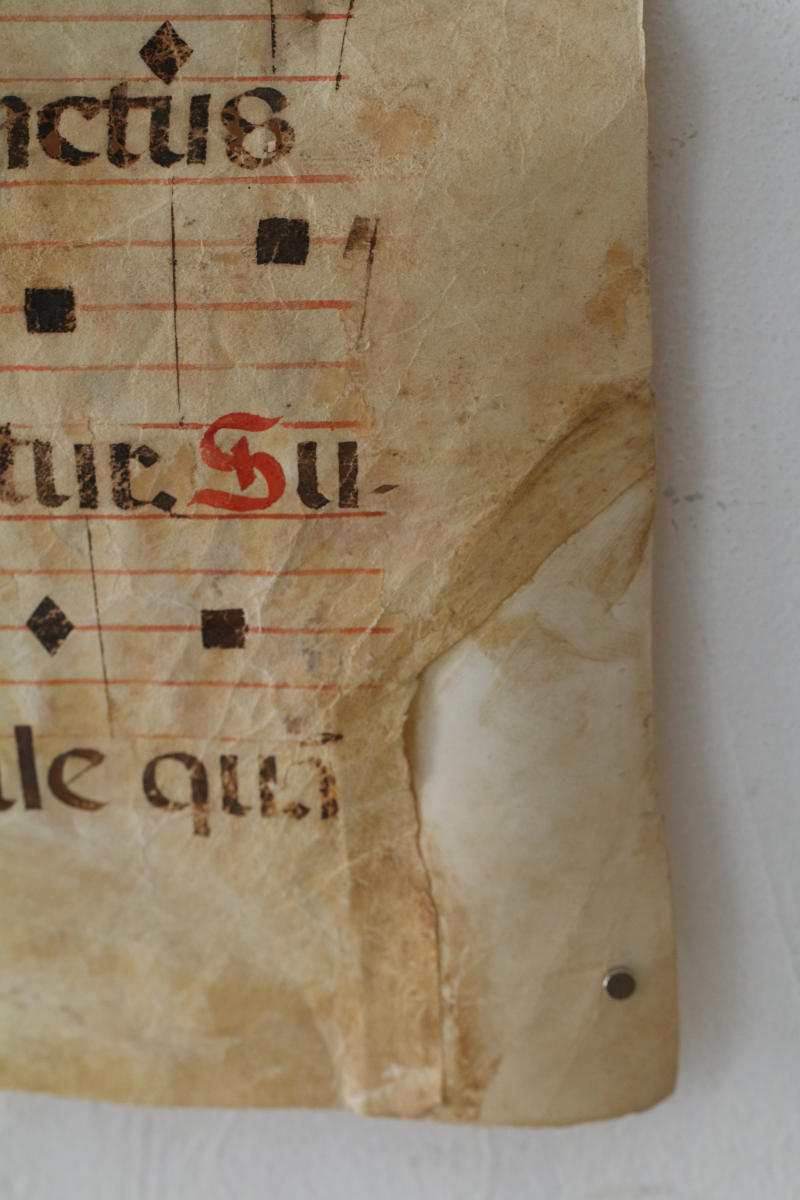 nctus
tur. Su-
ule quī